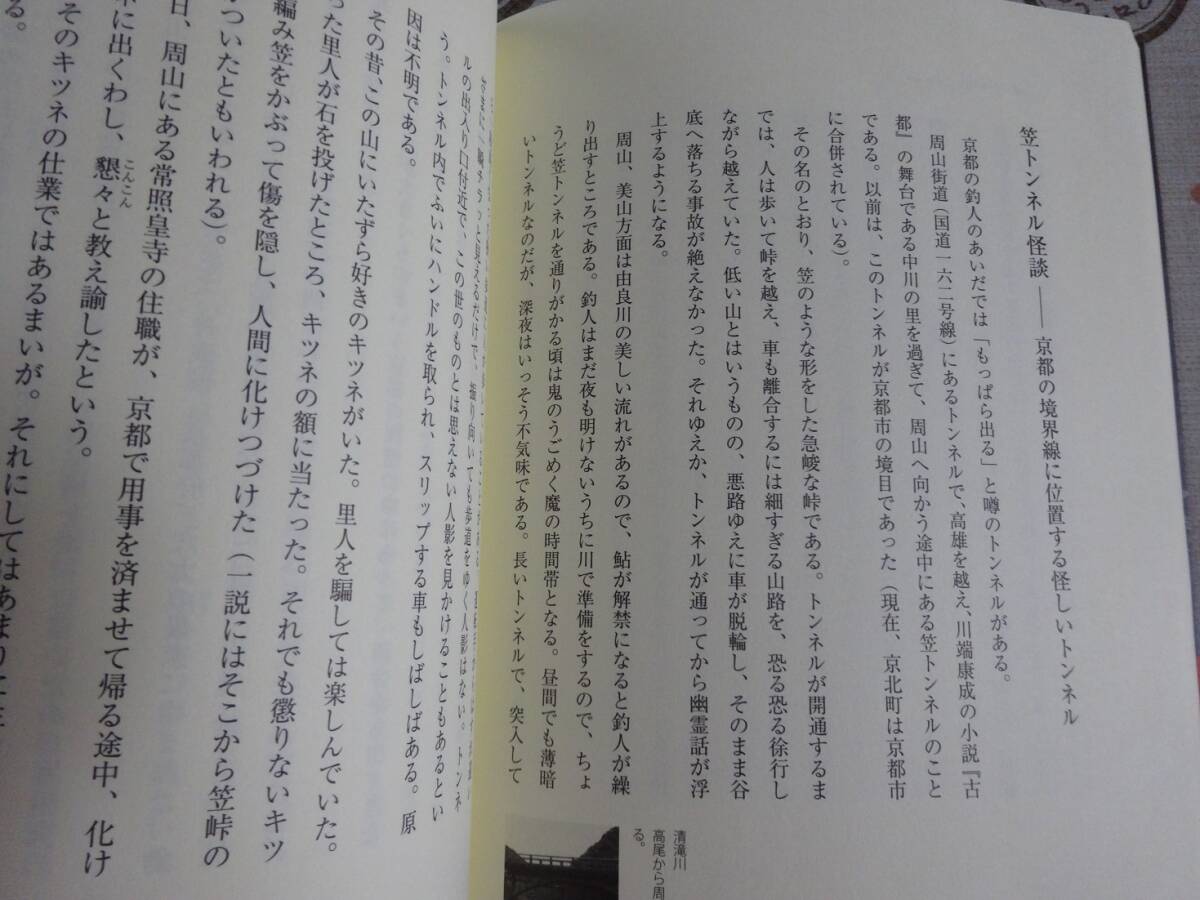 笠トンネル怪談 ── 京都の境界線に位置する怪しいトンネル
京都の釣人のあいだでは「もっぱら出る」と噂のトンネルがある。
周山街道（国道一六二号線）にあるトンネルで、高雄を越え、川端康成の小説『古
都』の舞台である中川の里を過ぎて、周山へ向かう途中にある笠トンネルのこと
である。以前は、このトンネルが京都市の境目であった（現在、京北町は京都市
に合併されている）。
その名のとおり、笠のような形をした急峻な峠である。トンネルが開通するま
では、人は歩いて峠を越え、車も離合するには細すぎる山路を、恐る恐る徐行し
ながら越えていた。低い山とはいうものの、悪路ゆえに車が脱輪し、そのまま谷
底へ落ちる事故が絶えなかった。それゆえか、トンネルが通ってから幽霊話が浮
上するようになる。
周山、美山方面は由良川の美しい流れがあるので、鮎が解禁になると釣人が繰
り出すところである。釣人はまだ夜も明けないうちに川で準備をするので、ちょ
うど笠トンネルを通りがかる頃は鬼のうごめく魔の時間帯となる。昼間でも薄暗
いトンネルなのだが、深夜はいっそう不気味である。長いトンネルで、突入して
清滝川
高尾から周
る。
ルの出入り口付近で、この世のものとは思えない人影を見かけることもあるとい
う。トンネル内でふいにハンドルを取られ、スリップする車もしばしばある。原
因は不明である。
その昔、この山にいたずら好きのキツネがいた。里人を騙しては楽しんでいた。
った里人が石を投げたところ、キツネの額に当たった。それでも懲りないキツ
編み笠をかぶって傷を隠し、人間に化けつづけた（一説にはそこから笠峠の
ついたともいわれる）。
日、周山にある常照皇寺の住職が、京都で用事を済ませて帰る途中、化け
に出くわし、懇々と教え諭したという。
こんこん
そのキツネの仕業ではあるまいが。それにしてはあまりに
る。